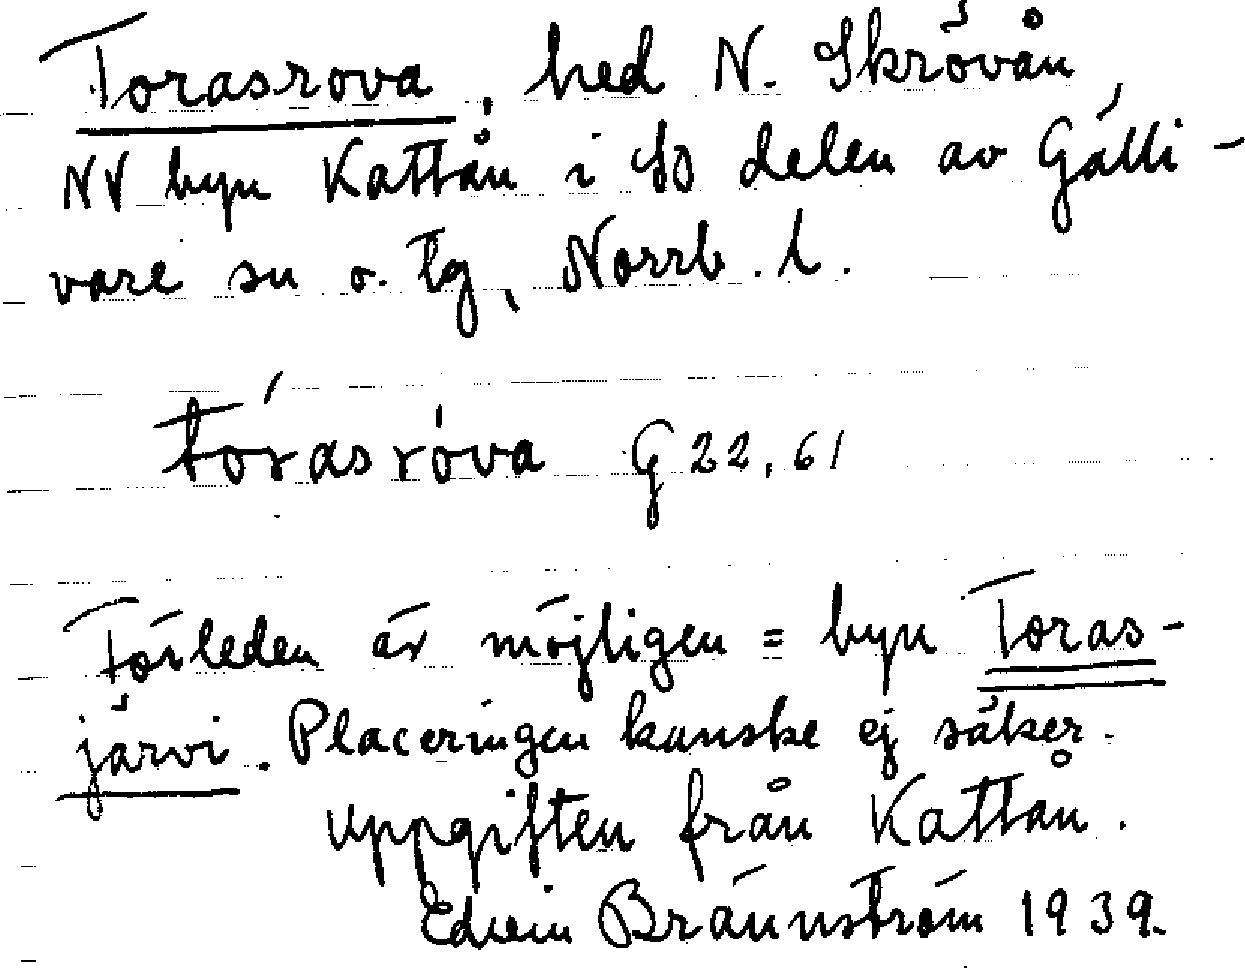 Torasrova, hed N. Skröván,
NV byn Kattån i SO delen av Gälli-
vare sn o. tg, Norrb. l.
tórasróva G 22, 61
Förleden är möjligen = byn Toras-
järvi. Placeringen kanske ej säker.
Uppgiften från Kattån.
Edvin Brännström 1939.